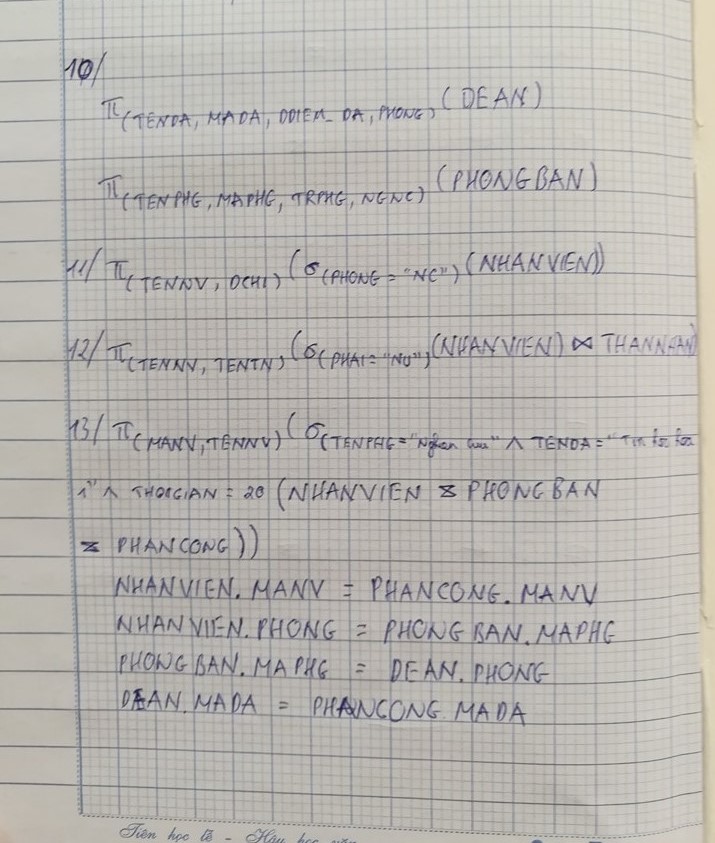 10/
π(TENDA, MADA, DDIEM_DA, PHONG) (DEAN)
π(TENPHG, MAPHG, TRPHG, NGNC) (PHONGBAN)
11/ π(TENNV, DCHI) (σ(PHONG = "NC") (NHANVIEN))
12/ π(TENNV, TENTN) (σ(PHAI = "NU") (NHANVIEN) ⋈ THANNHAN)
13/ π(MANV, TENNV) (σ(TENPHG = "Nghien cuu" ∧ TENDA = "Tin hoc hoa
1" ∧ THOIGIAN = 20 (NHANVIEN ⋈ PHONGBAN
⋈ PHANCONG))
NHANVIEN.MANV = PHANCONG.MANV
NHANVIEN.PHONG = PHONGBAN.MAPHG
PHONGBAN.MAPHG = DEAN.PHONG
DEAN.MADA = PHANCONG.MADA
Tiên học lễ - Hậu học văn